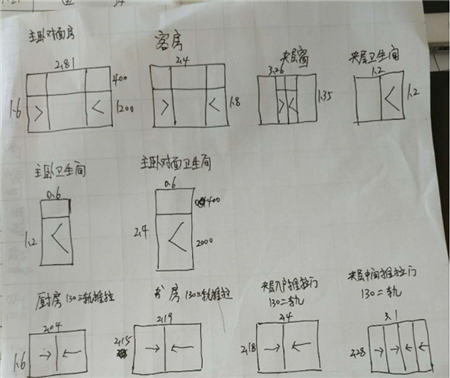 主卧对面房
2.81
400
1.6
1200
客房
2.4
1.8
夹层窗
3.26
1.35
夹层卫生间
1.2
1.2
主卧卫生间
0.6
1.2
主卧对面卫生间
0.6
400
2.4
2000
厨房130二轨推拉
2.04
1.6
房130三轨推拉
2.19
2.15
夹层入户推拉门
130二轨
2.4
2.18
夹层中间推拉门
130二轨
3.1
2.28